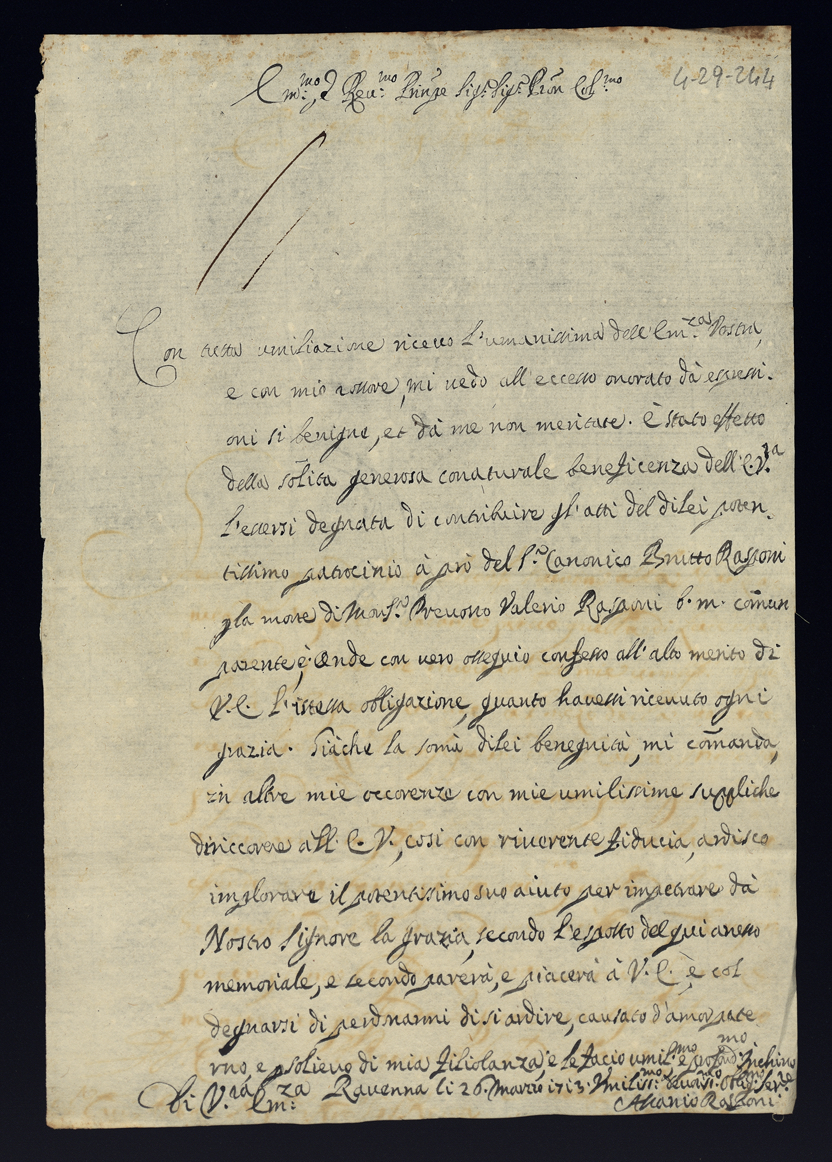 Em:mo e Reu:mo Prin̄pe Sig:r Sig:r P̄ron Col:mo
4-29-244
Con tutta umiliazione riceuo l'umanissima dell'Em:za Vostra,
e con mio rossore, mi uedo all'eccesso onorato dà espressi-
oni si benigne, et dà me non meritate. È stato effetto
della solita generosa conaturale beneficenza dell'E.V.ra
l'essersi degnata di contribuire gl'atti del dilei poten-
tissimo patrocinio à prò del S.r Canonico Brutto Rasponi
p la morte di Mons.r Preuosto Valerio Rasponi b. m. com̄un
parente, è. Onde con vero ossequio confesso all'alto merito di
V.E. l'istessa obligazione, quanto hauessi riceuuto ogni
grazia. Giàche la som̄a dilei benegnità, mi com̄anda,
in altre mie occorenze con mie umilissime suppliche
diriccorere all'E.V., cosi con riuerente fiducia, ardisco
implorare il potentissimo suo aiuto per impetrare dà
Nostro Signore la grazia, secondo l'esposto del qui anesso
memoriale, e secondo parerà, e piacerà à V.E., è col
degnarsi di perdonarmi di si ardire, causato d'amor pate
rno, e p solieuo di mia figliolanza, è le facio umil:mo è profond:mo Inchino
Di V.ra Em:za Ravenna li 26. Marzo 1713. Vmiliss:mo Deuotiss:mo Oblig:mo Ser.re
Ascanio Rasponi